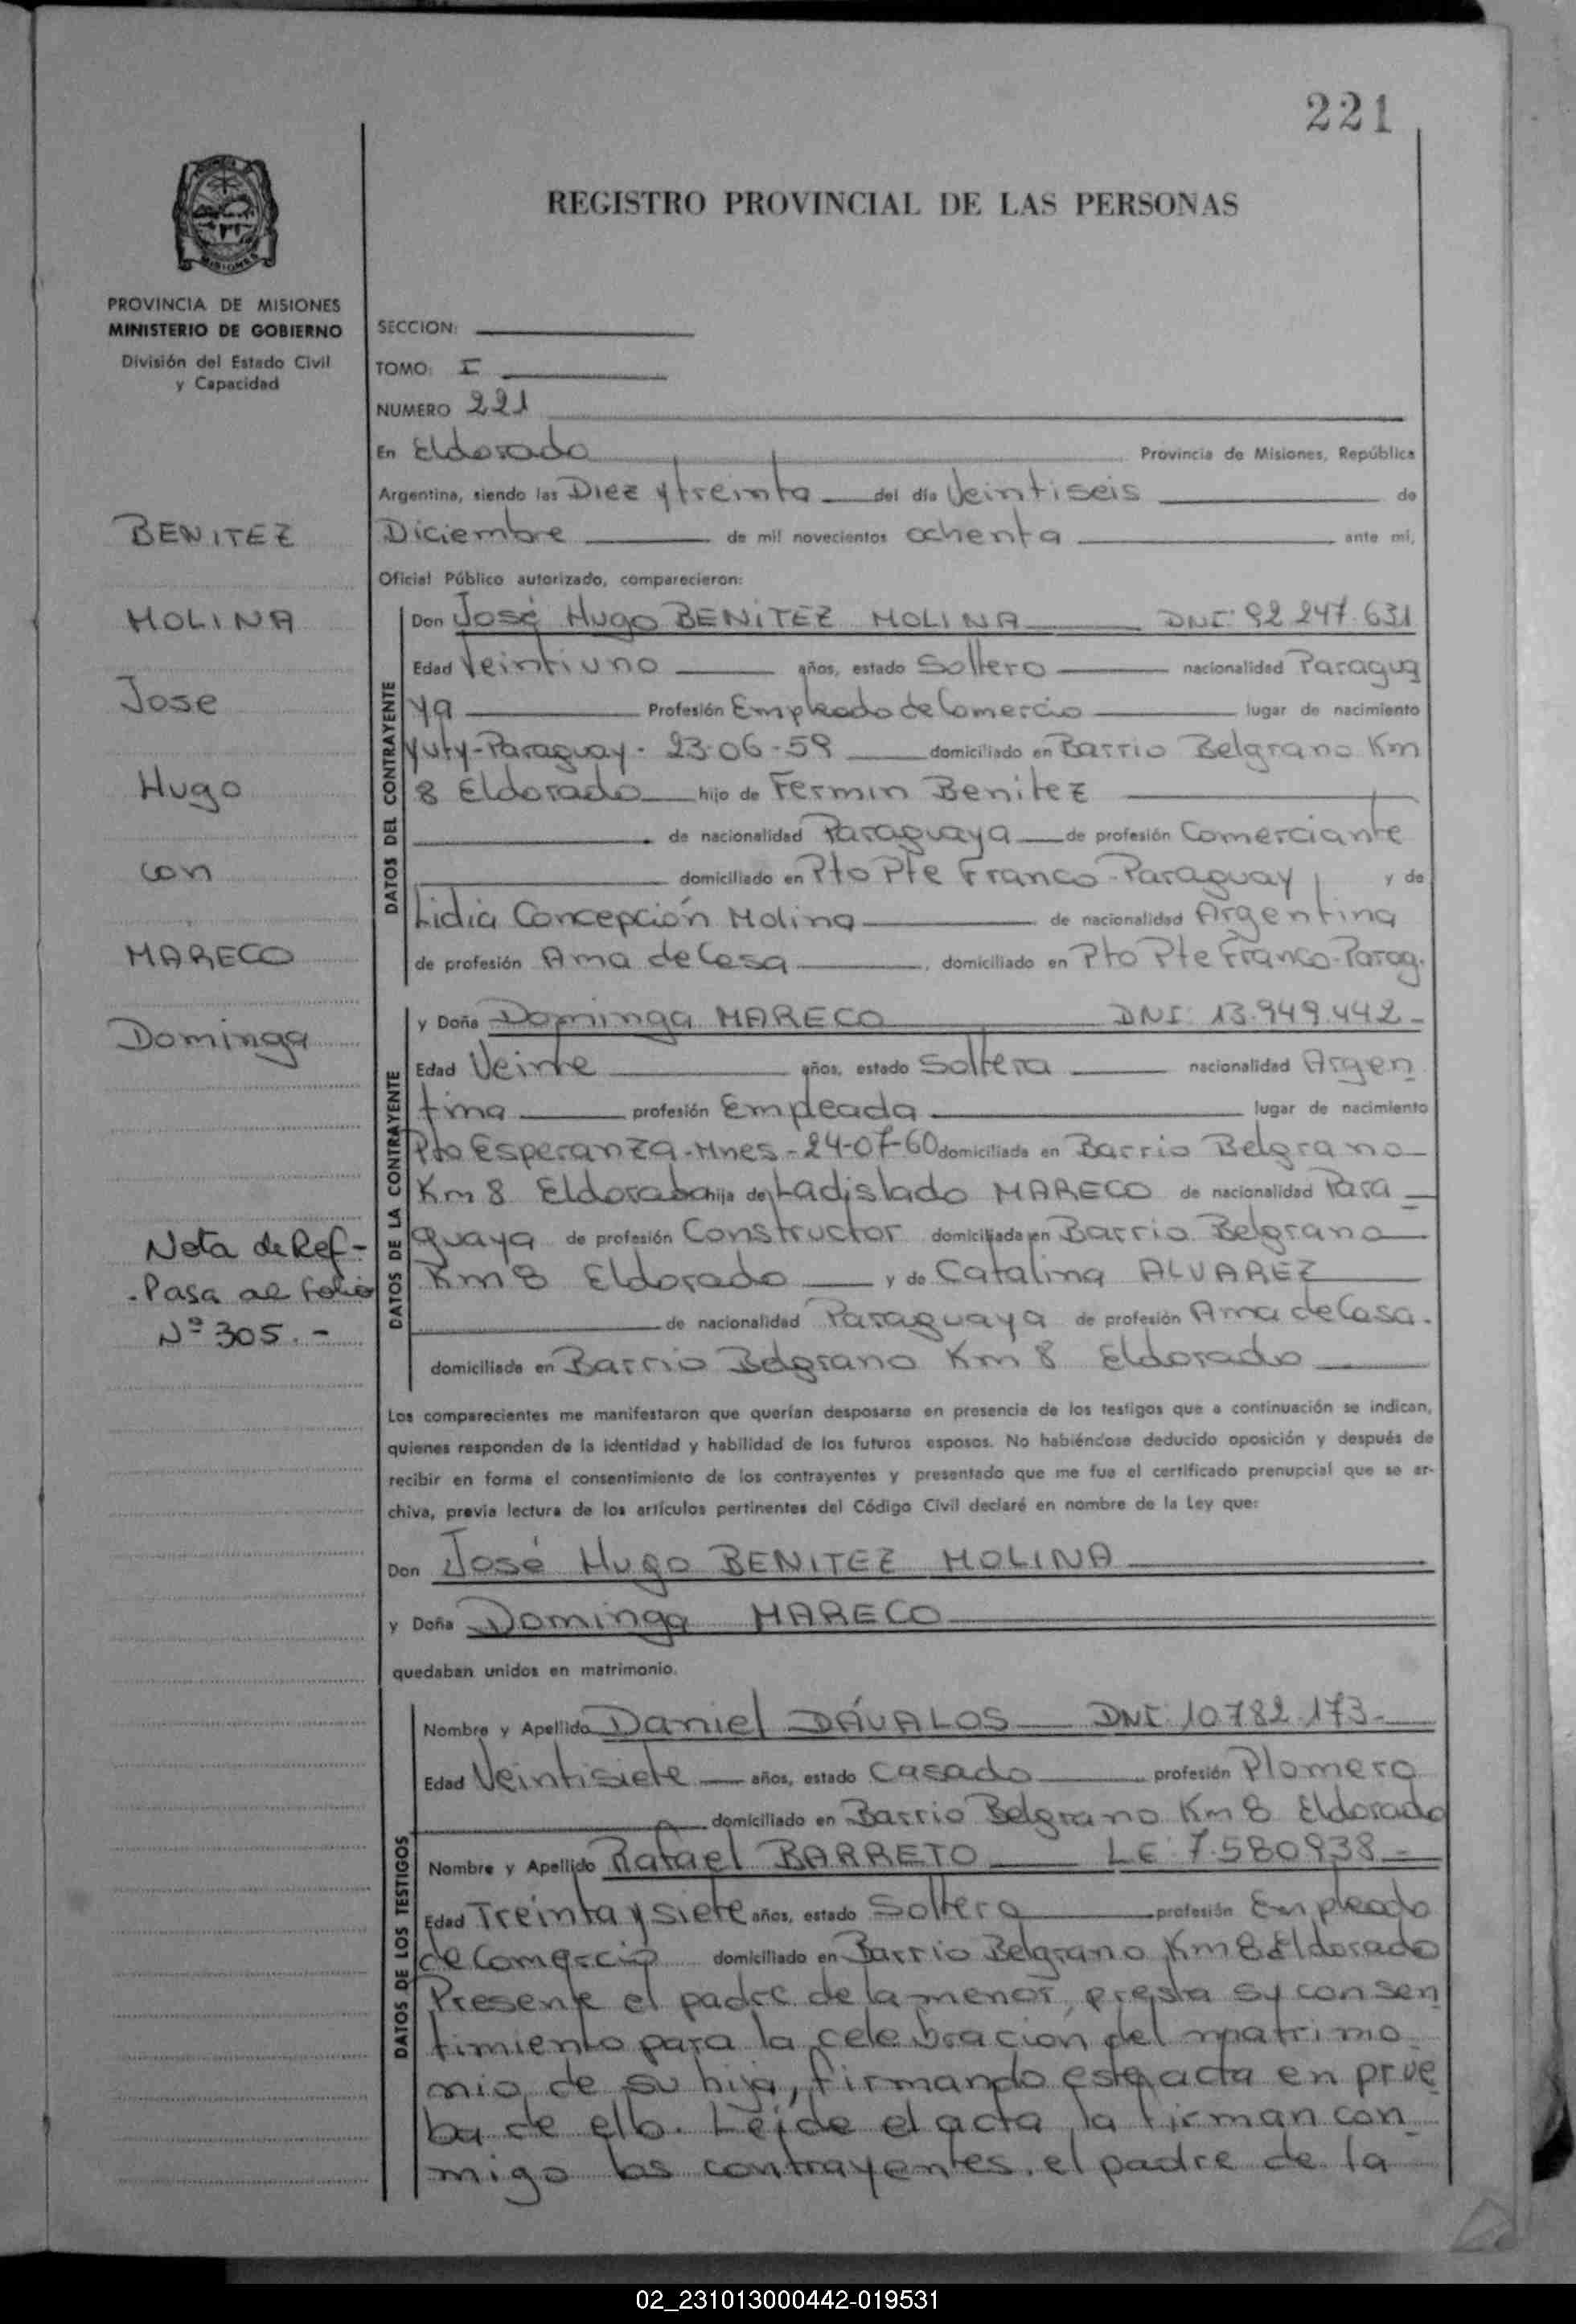 221
REGISTRO PROVINCIAL DE LAS PERSONAS
MISIONES
PROVINCIA DE MISIONES
MINISTERIO DE GOBIERNO
División del Estado Civil
y Capacidad
BENITEZ
MOLINA
Jose
Hugo
con
MARECO
Dominga
Nota de Ref-
-Pasa al Folio
Nº 305.-
SECCION:
TOMO: I
NUMERO 221
En Eldorado Provincia de Misiones, República
Argentina, siendo las Diez y treinta del día Veintiseis de
Diciembre de mil novecientos ochenta ante mi,
Oficial Público autorizado, comparecieron:
DATOS DEL CONTRAYENTE
Don José Hugo BENITEZ MOLINA DNI: 92.247.631
Edad Veintiuno años, estado Soltero nacionalidad Paragua
ya Profesión Empleado de Comercio lugar de nacimiento
Yuty-Paraguay- 23-06-59 domiciliado en Barrio Belgrano Km
8 Eldorado hijo de Fermin Benitez
de nacionalidad Paraguaya de profesión Comerciante
domiciliado en Pto Pte Franco-Paraguay y de
Lidia Concepción Molina de nacionalidad Argentina
de profesión Ama de Casa, domiciliado en Pto Pte Franco-Parag.
DATOS DE LA CONTRAYENTE
y Doña Dominga MARECO DNI: 13.949.442-
Edad Veinte años, estado Soltera nacionalidad Argen
tina profesión Empleada lugar de nacimiento
Pto Esperanza-Mnes-24-07-60 domiciliada en Barrio Belgrano
Km 8 Eldorado hija de Ladislado MARECO de nacionalidad Para
guaya de profesión Constructor domiciliada en Barrio Belgrano
Km 8 Eldorado y de Catalina ALVAREZ
de nacionalidad Paraguaya de profesión Ama de Casa.
domiciliada en Barrio Belgrano Km 8 Eldorado
Los comparecientes me manifestaron que querían desposarse en presencia de los testigos que a continuación se indican,
quienes responden de la identidad y habilidad de los futuros esposos. No habiéndose deducido oposición y después de
recibir en forma el consentimiento de los contrayentes y presentado que me fue el certificado prenupcial que se ar-
chiva, previa lectura de los artículos pertinentes del Código Civil declaré en nombre de la Ley que:
Don José Hugo BENITEZ MOLINA
y Doña Dominga MARECO
quedaban unidos en matrimonio.
DATOS DE LOS TESTIGOS
Nombre y Apellido Daniel DÁVALOS DNI: 10.782.173-
Edad Veintisiete años, estado Casado profesión Plomero
domiciliado en Barrio Belgrano Km 8 Eldorado
Nombre y Apellido Rafael BARRETO LE: 7.580938-
Edad Treinta y siete años, estado Soltero profesión Empleado
de Comercio domiciliado en Barrio Belgrano Km 8 Eldorado
Presente el padre de la menor, presta su consen
timiento para la celebración del matrimo
nio de su hija, firmando este acta en prue
ba de ello. Leída el acta, la firman con
migo los contrayentes, el padre de la
02_231013000442-019531